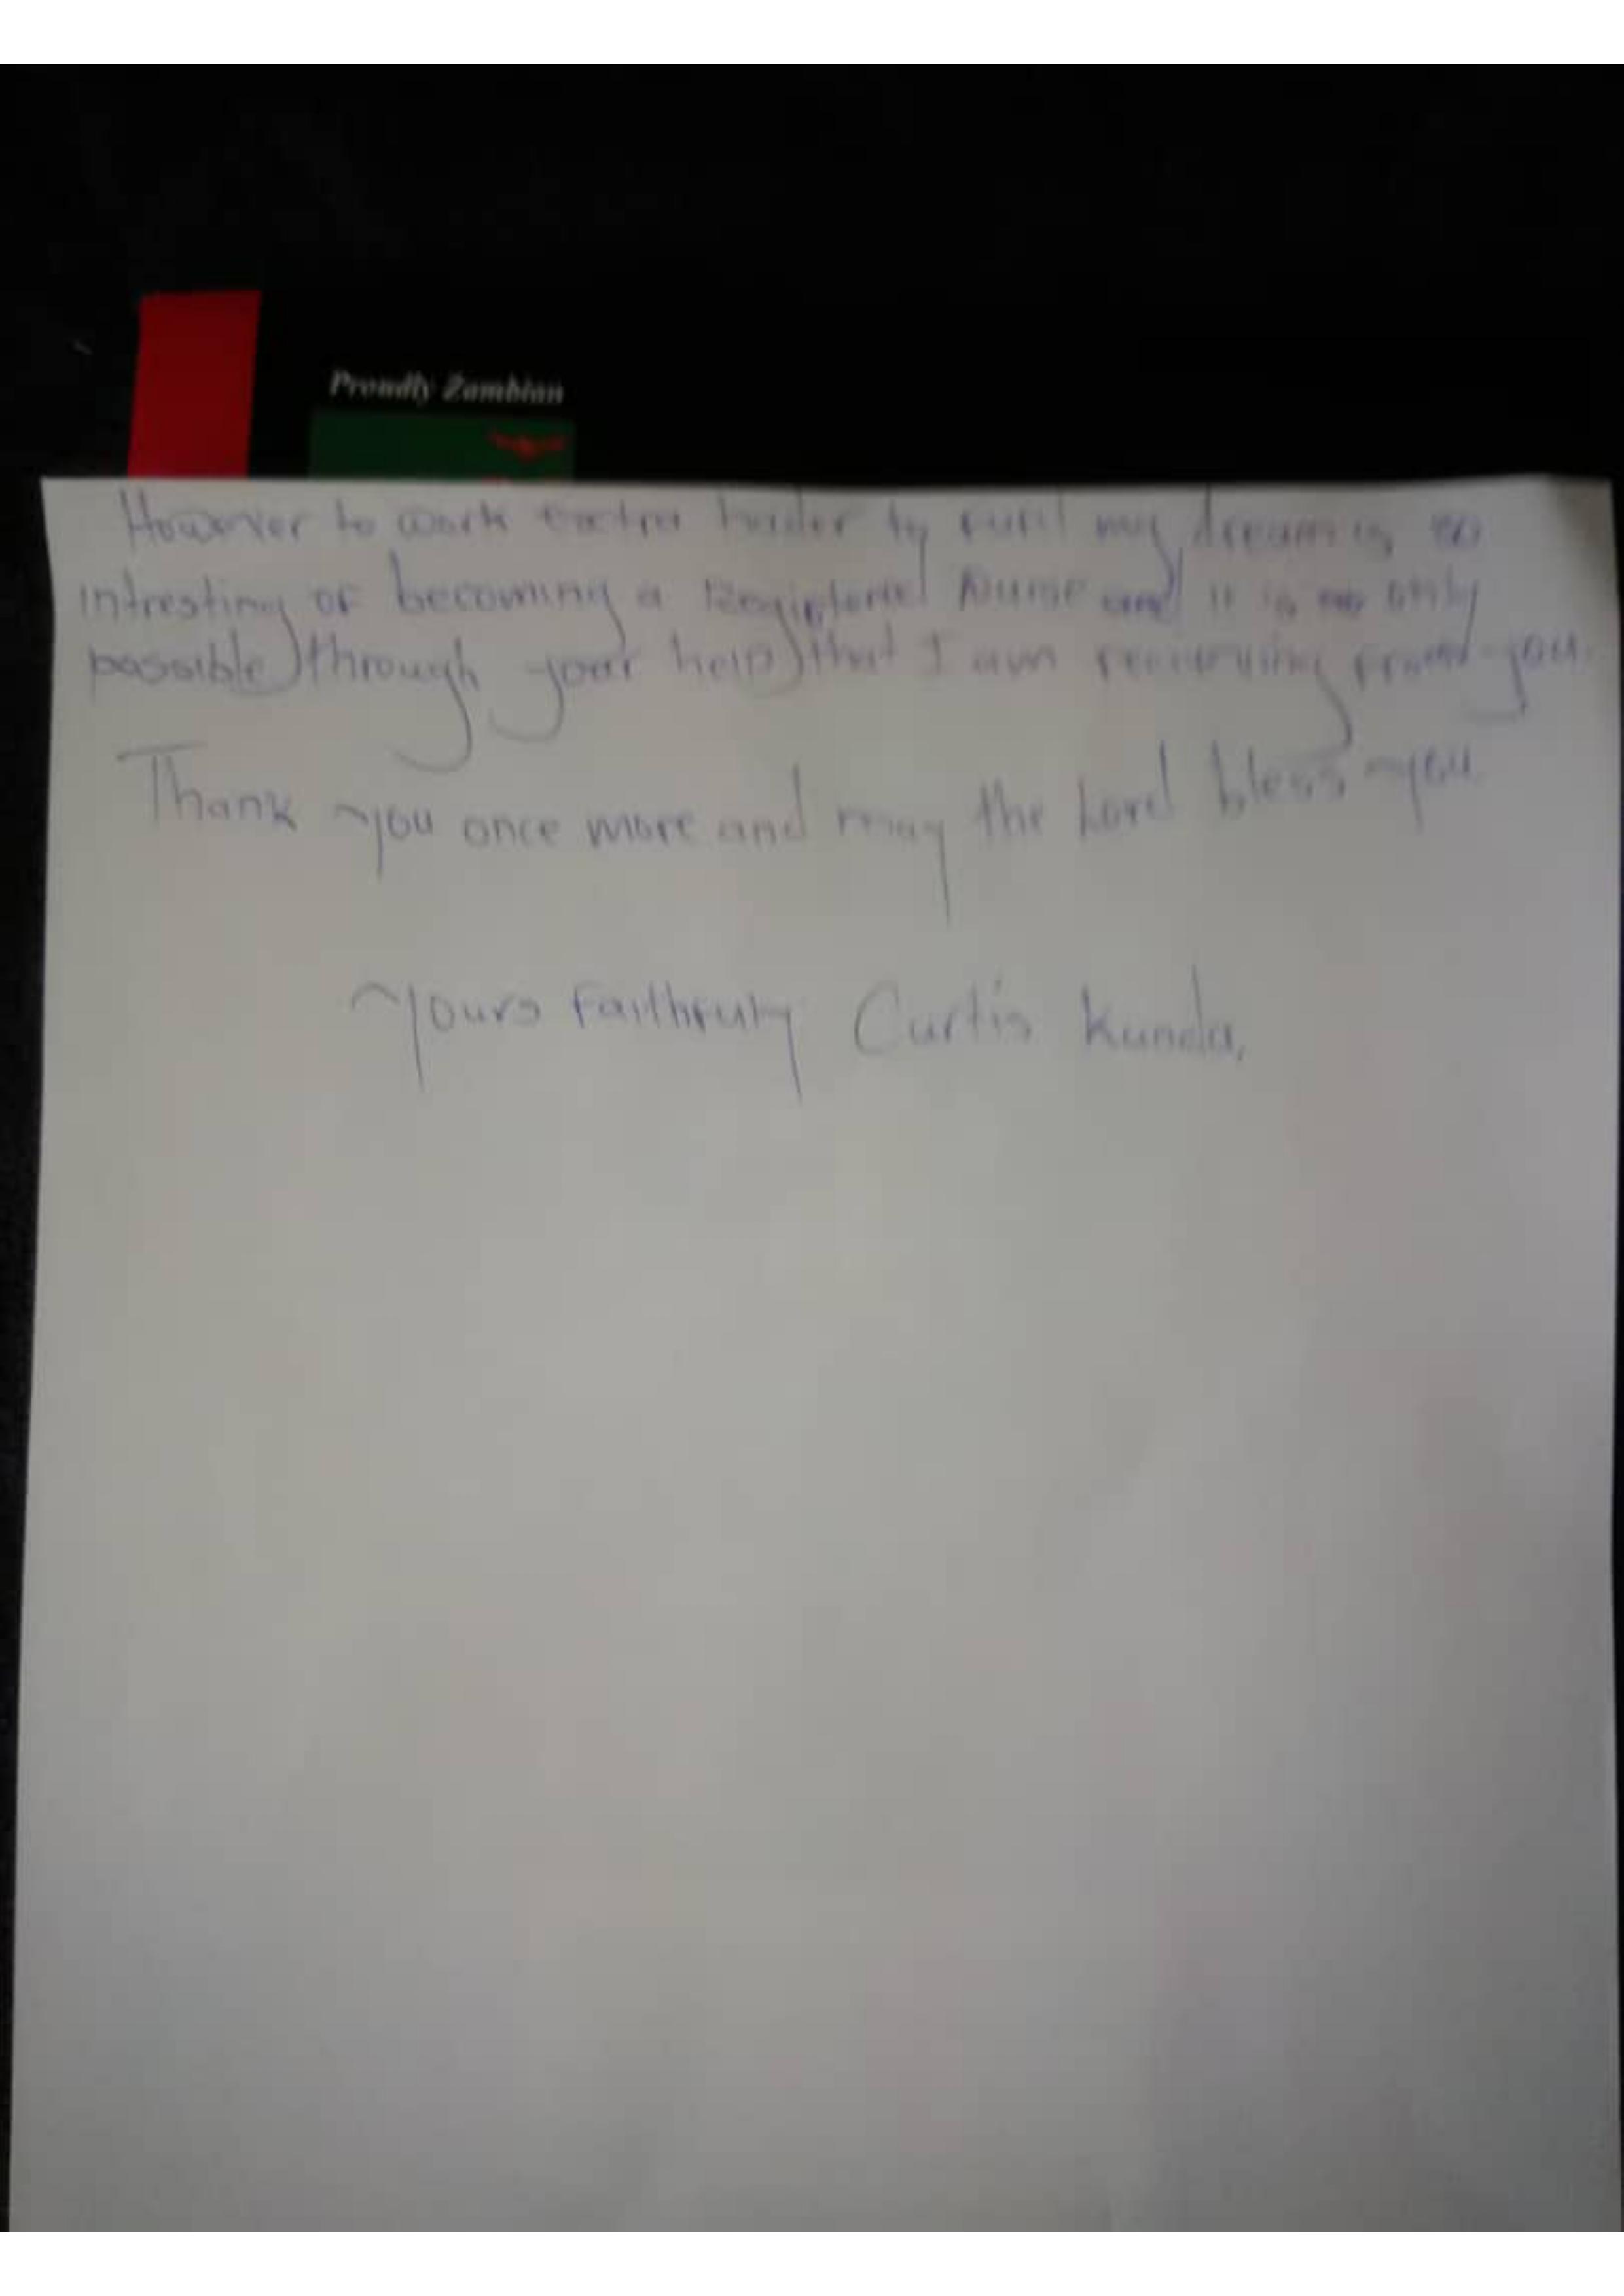 Proudly Zambian
However to work extra harder to my dream is so
intresting of becoming a Registered Nurse and it is only
possible through your help that I am recieving from you.
Thank you once more and may the Lord bless you
Yours Faithfuly Curtis Kunda,